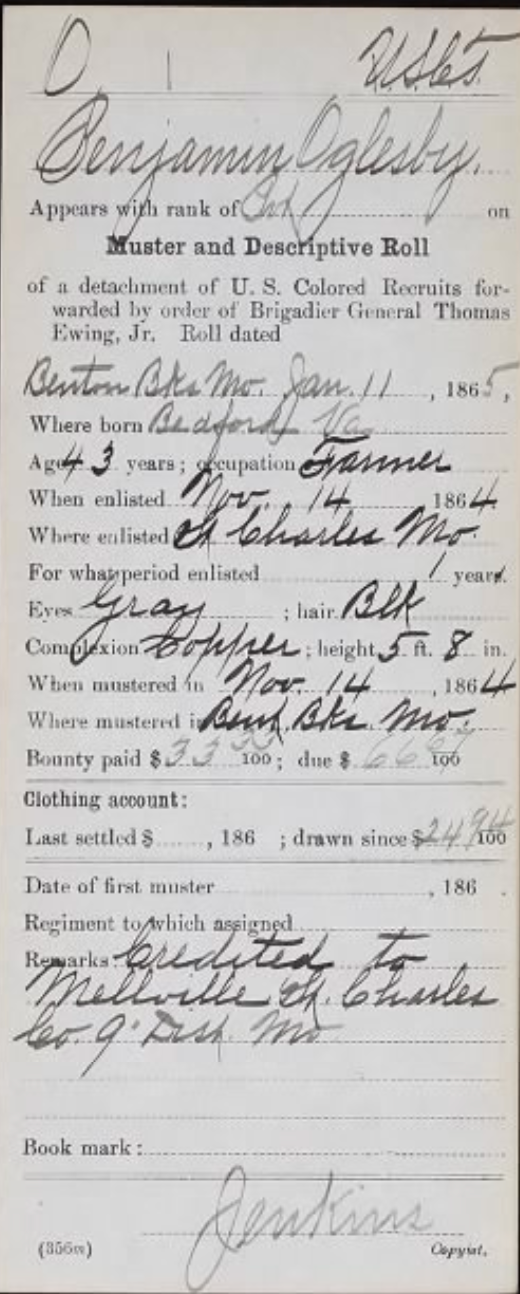 O | USCT
Benjamin Oglesby.
Appears with rank of Pvt on
Muster and Descriptive Roll
of a detachment of U. S. Colored Recruits for-
warded by order of Brigadier General Thomas
Ewing, Jr. Roll dated
Benton Bks Mo. Jan. 11, 1865,
Where born Bedford Va
Age 43 years; occupation Farmer
When enlisted Nov. 14 1864
Where enlisted St Charles Mo.
For what period enlisted 1 years.
Eyes Gray ; hair Blk
Complexion Copper; height 5 ft. 8 in.
When mustered in Nov. 14, 1864
Where mustered in Bent. Bks Mo.
Bounty paid $33 33/100; due $66 67/100
Clothing account:
Last settled $ , 186 ; drawn since $24 94/100
Date of first muster , 186 .
Regiment to which assigned
Remarks: Credited to
Mellville St. Charles
Co. 9" Dist. Mo
Book mark:
Jenkins
(356m) Copyist.